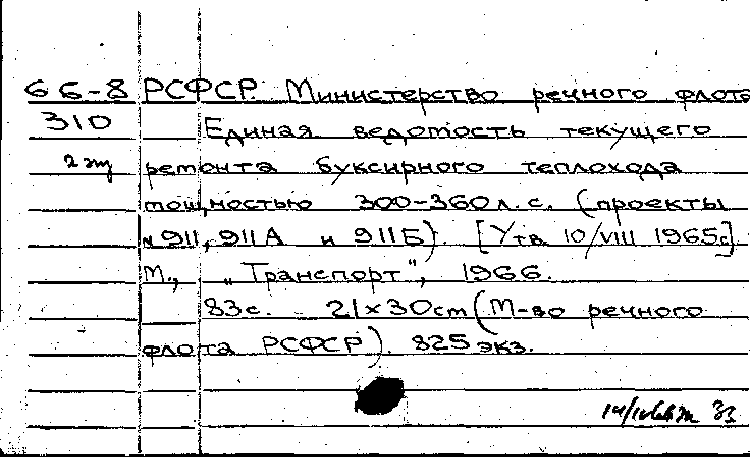 66-8 РСФСР. Министерство речного флота
310 Единая ведомость текущего
2 экз ремонта буксирного теплохода
мощностью 300-360 л.с. (проекты
№ 911, 911А и 911Б). [Утв. 10/VIII 1965г.]
М., „Транспорт", 1966.
83с. 21x30cm (М-во речного
флота РСФСР). 825 экз.